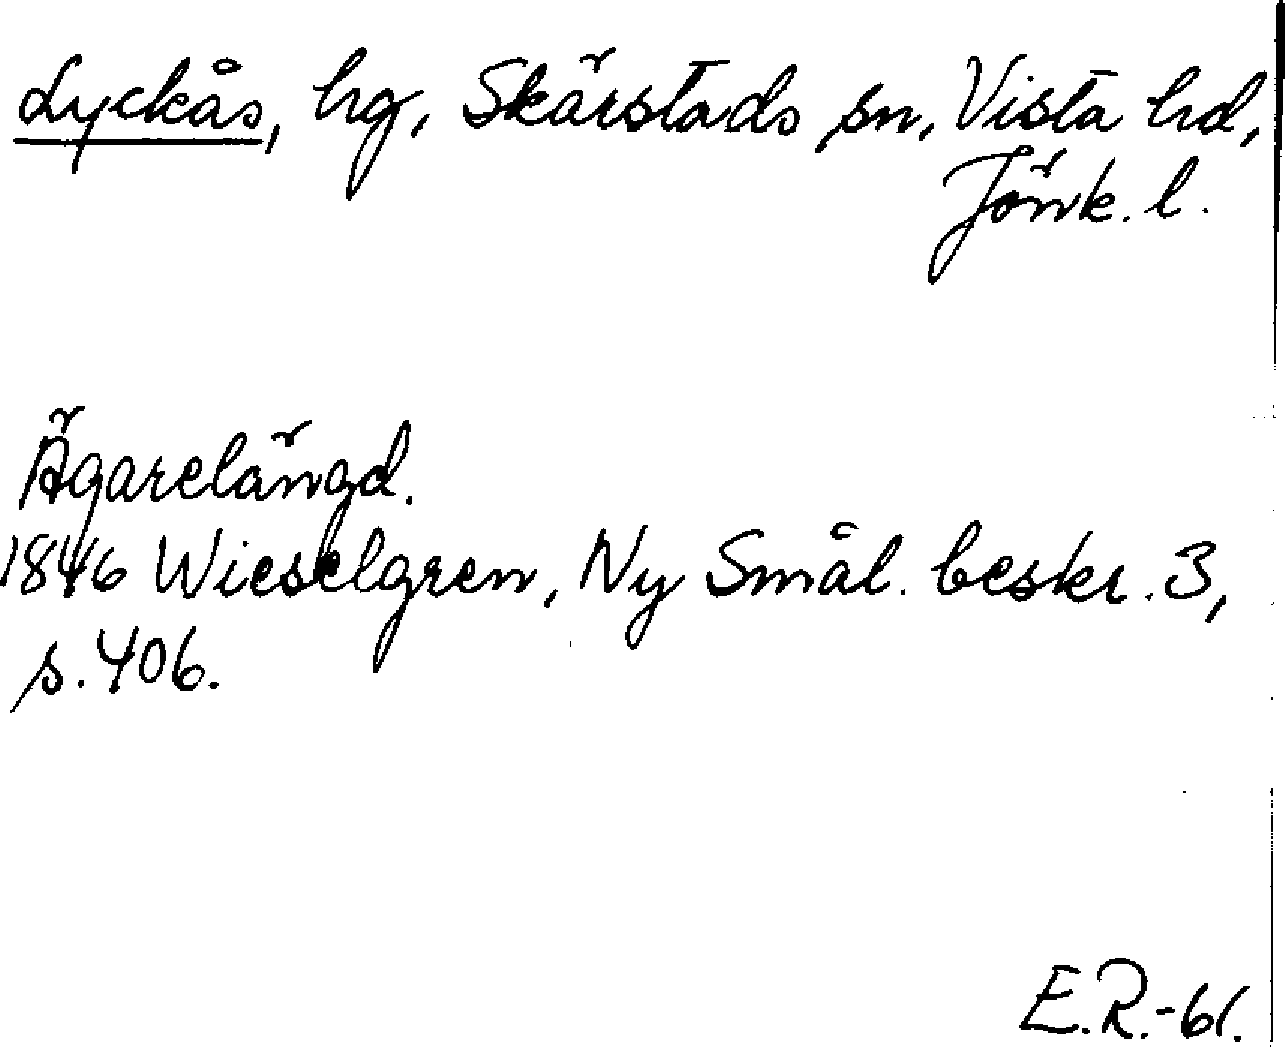 Lyckås, hg, Skärstads sn, Vista hd,
Jönk. l.
Ägarelängd.
1846 Wieselgren, Ny Smål. beskr. 3,
s. 406.
E.R.-61.